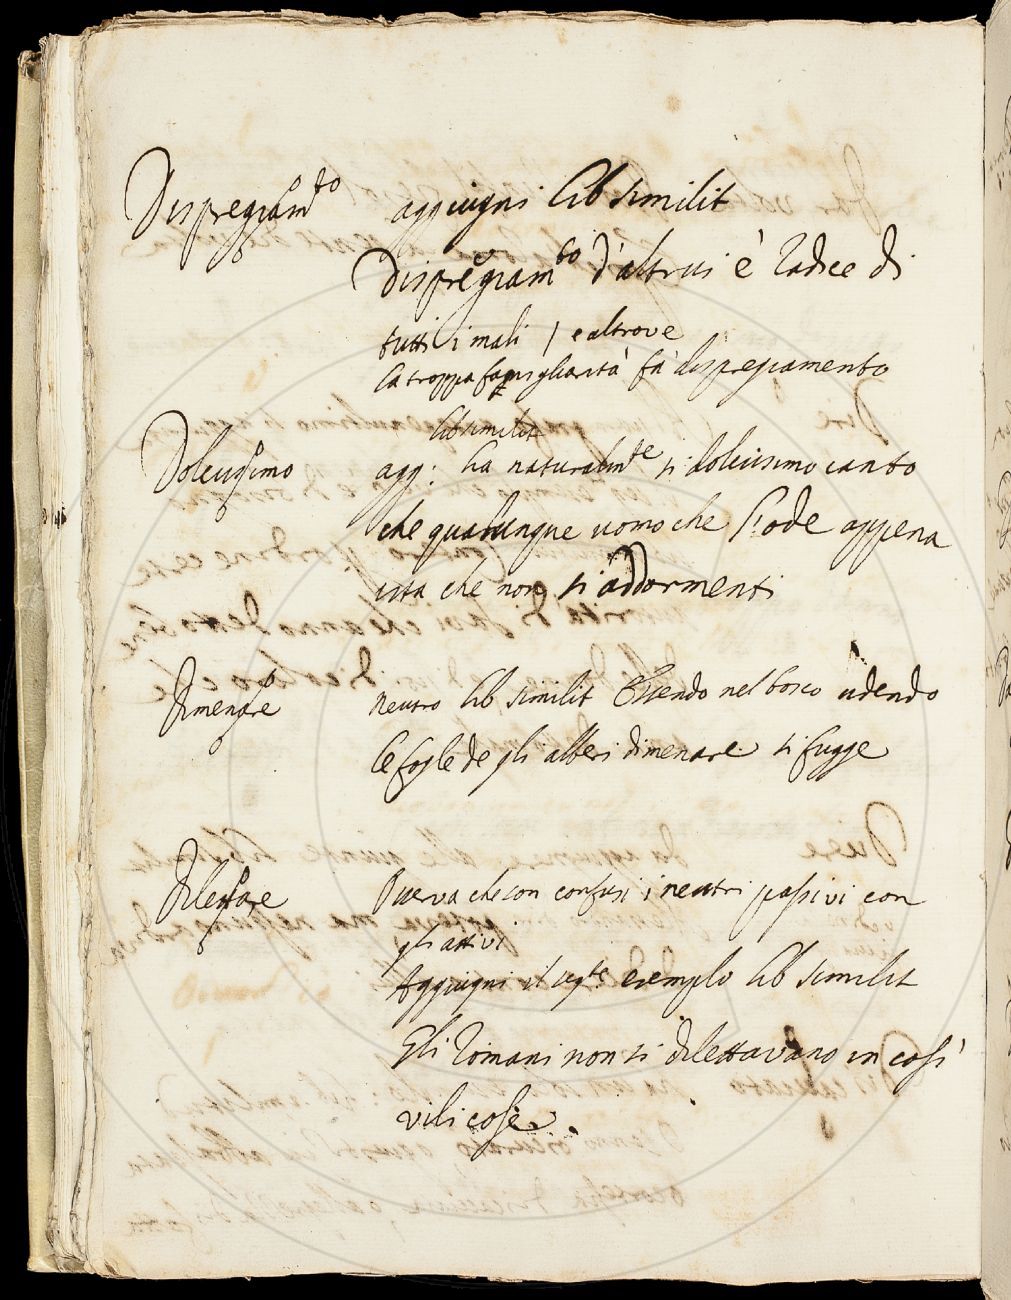 Dispregiam.to aggiugni Lib similit
Dispregiam.to d'altrui è Radice di
tutti i mali / e altrove
La troppa famigliarità fà dispregiamento
Lib similit
Dolcissimo agg: Ha naturalm.te si dolcissimo canto
che qualunque uomo che l'ode appena
sta che non si addormenti
Dimenare neutro Lib similit Essendo nel bosco udendo
le fogle de gli alberi dimenare si fugge
Dilettare Osserva che con confusi i neutri passivi con
gli attivi
Aggiugni il seg.te esempio Lib similit
Gli Romani non si dilettavano in così
vili cose.